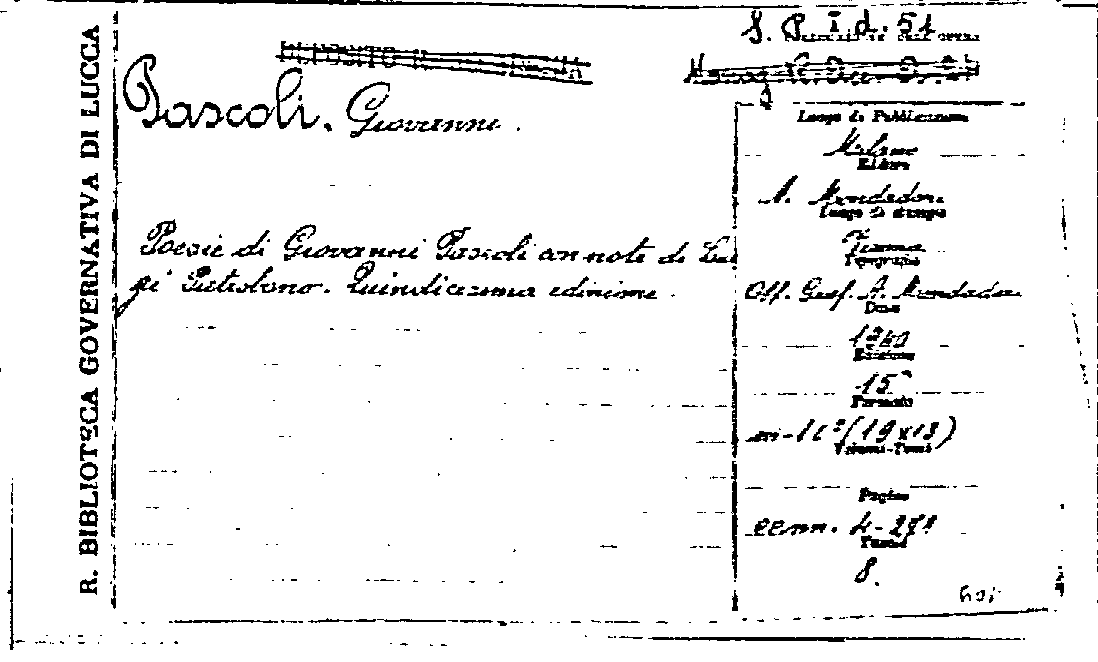 R. BIBLIOTECA GOVERNATIVA DI LUCCA
S. P. I. d. 51
Pascoli. Giovanni.
Luogo di Pubblicazione
Milano
Editore
A. Mondadori
Luogo di stampa
Verona
Tipografia
Off. Graf. A. Mondadori
Data
1940
Edizione
15ª
Formato
in-16°(19x13)
Volumi-Tomi
Pagine
4-271
Tavole
8.
Poesie di Giovanni Pascoli con note di Lui
gi Pietrobono. Quindicesima edizione.